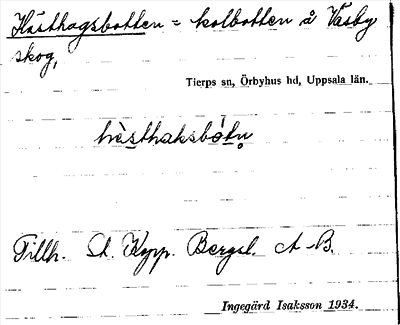 Hästhagsbotten = kolbotten å Väsby
skog,
Tierps sn, Örbyhus hd, Uppsala län.
hèsthaksbòtn̥
Tillh. St. Kopp. Bergsl. A-B.
Ingegärd Isaksson 1934.